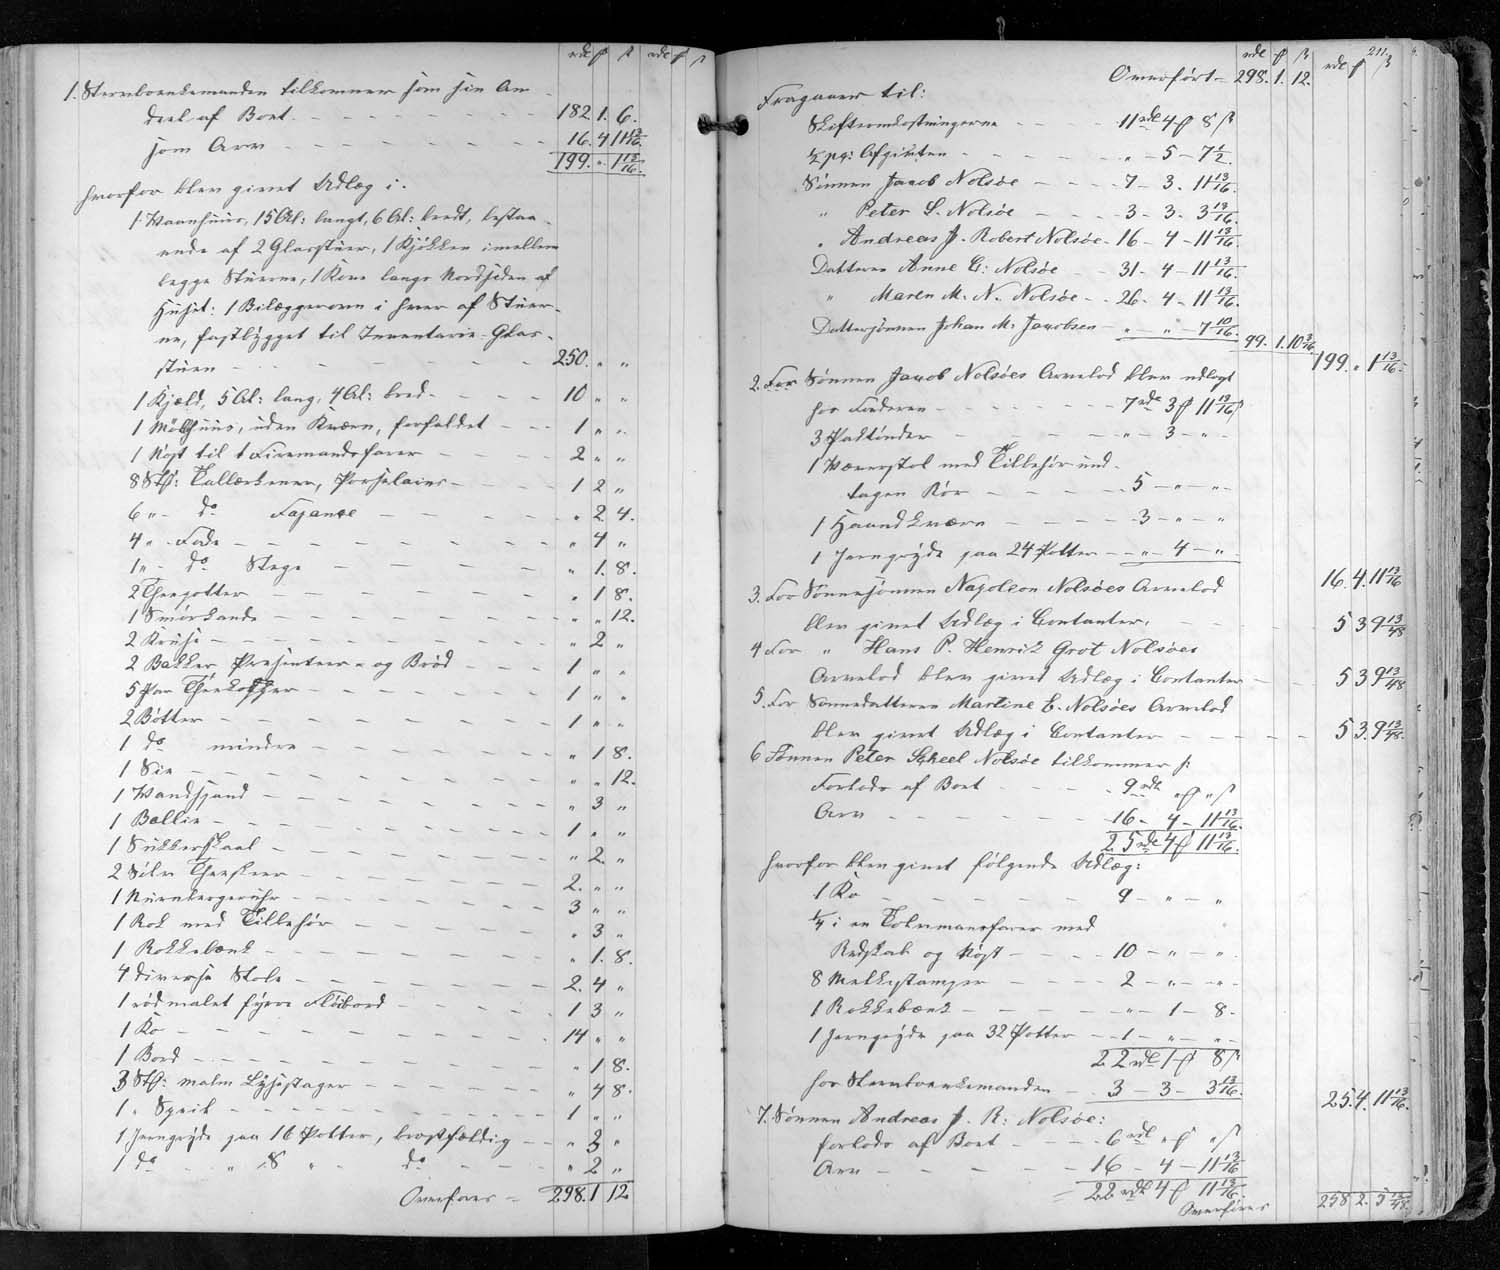 rdl ꝭ β rdl ꝭ β
1. Stervboenkemanden tilkommer som sin An-
deel af Boet - - - 182. 1. 6.
som Arv - - - 16. 4 11 13/16.
199. " 1 13/16.
hvorfor blev givet Udlæg i.
1 Vaanhuus, 15 Al: langt, 6 Al: bredt, bestaa-
ende af 2 Glasstuer, 1 Kjökken imellem
begge Stuerne, 1 Kove langs Nordsiden af
Huset: 1 Bilæggerovn i hver af Stuer-
ne, fastbygget til Inventarie Glas-
stuen - - - 250. " "
1 Kjæld, 5 Al: lang, 4 Al: bred - - - 10 " "
1 Möllhuus, uden Kværn, forfaldet - - - 1 " "
1 Nöst til 1 Firemandsfarer - - - 2 " "
8 Stk: Tallerkener, Porselains - - - 1 2 "
6 " - do Fajance - - - " 2 4.
4 " - Fade - - - " 4 "
1 " - do Stege - - - " 1. 8.
2 Theepotter - - - " 1 8.
1 Smörkande - - - " " 12.
2 Kruse - - - " 2 "
2 Bakker Presenteer- og Bröd - - - 1 " "
5 Par Theekopper - - - 1 " "
2 Bötter - - - 1 " "
1 do mindre - - - " 1 8.
1 Sie - - - " " 12.
1 Vandspand - - - " 3 "
1 Ballie - - - 1 " "
1 Sukkerskaal - - - " 2. "
2 Sölv Theeskeer - - - 2. " "
1 Nurnbergeruhr - - - 3 " "
1 Rok med Tilbehör - - - " 3 "
1 Rokkebænk - - - " 1. 8.
4 diverse Stole - - - 2. 4 "
1 rödmalet fyrre Flöibord - - - 1 3 "
1 Ko - - - 14 " "
1 Bord - - - " 1 8.
3 Stk: malm Lysestager - - - " 4 8.
1 " Speil - - - 1 " "
1 Jerngryde paa 16 Potter, bröstfældig - - " 3 "
1 do " 8 " do - - " 2 "
Overföres = 298. 1 12
211.
rdl ꝭ β rdl ꝭ β
Overfört - 298. 1. 12.
Fragaaer til:
Skifteomkostningerne - - - 11 rdl 4 ꝭ 8 β
½ pq: Afgiften - - - " - 5 - 7 ½.
Sönnen Jacob Nolsöe - - - 7 - 3. 11 13/16.
" Peter S. Nolsöe - - - 3 - 3 - 3 13/16.
" Andreas J. Robert Nolsöe - 16 - 4 - 11 13/16.
Datteren Anne C: Nolsöe - - 31 - 4 - 11 13/16.
" Maren M. N. Nolsöe - - 26 - 4 - 11 13/16.
Dattersönnen Johan M. Jacobsen - " - " - 7 10/16. 99. 1. 10 3/16.
199. " 1 13/16.
2. For Sönnen Jacob Nolsöes Arvelod blev udlagt
hos Faderen - - - 7 rdl 3 ꝭ 11 13/16 β
3 Padtönder - - - " - 3 - "
1 Væverstol med Tilbehör und-
tagen Rör - - - 5 - " - "
1 Haandkværn - - - 3 - " - "
1 Jerngryde paa 24 Potter - - " - 4 - "
16. 4. 11 13/16
3. For Sönnesönnen Napoleon Nolsöes Arvelod
blev givet Udlæg i Contanter. - - - 5 3 9 13/48
4 For " Hans P. Henrik Grot Nolsöes
Arvelod blev gived Udlæg i Contanter - - 5 3 9 13/48
5. For Sönnedatteren Martine E. Nolsöes Arvelod
blev givet Udlæg i Contanter - - - 5 3. 9 13/48.
6 Sönnen Peter Scheel Nolsöe tilkommer s:
Forlods af Boet - - - 9 rdl " ꝭ " β
Arv - - - 16 - 4 - 11 13/16.
25 rdl 4 ꝭ 11 13/16.
hvorfor blev givet fölgende Udlæg:
1 Ko - - - 9 - " - "
¼ i en Tolvmansfarer med
Redskab og Nöst - - - 10 - " - "
8 Melkestamper - - - 2 - " - "
1 Rokkebænk - - - " - 1 - 8.
1 Jerngryde paa 32 Potter - - 1 - " - "
22 rdl 1 ꝭ 8 β
hos Stervboenkemanden - - 3 - 3 - 3 13/16.
25. 4. 11 13/16.
7. Sönnen Andreas J. R: Nolsöe:
forlods af Boet - - - 6 rdl " ꝭ " β
Arv - - - 16 - 4 - 11 13/16
= 22 rdl 4 ꝭ 11 13/16
Overföres 258. 2. 5 13/48.